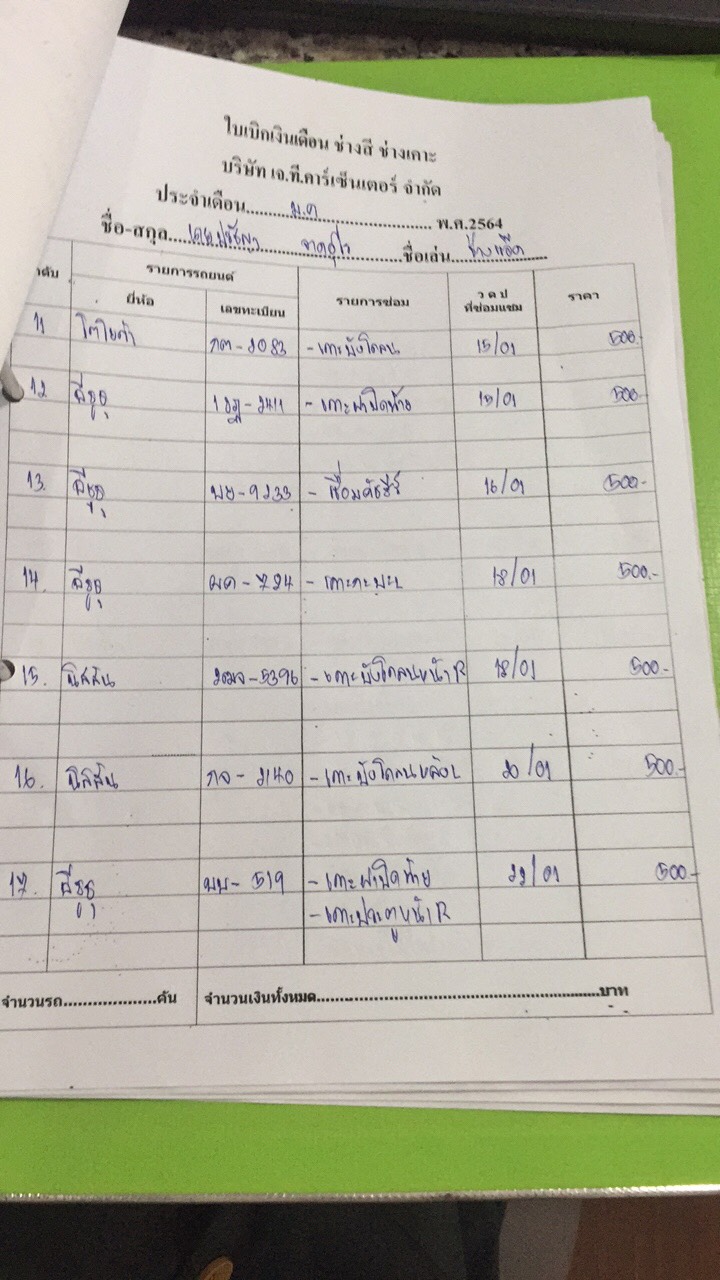 ใบเบิกเงินเดือน ช่างสี ช่างเคาะ
บริษัท เจ.ที.คาร์เซ็นเตอร์ จำกัด
ประจำเดือน......ม.ค......พ.ศ.2564
ชื่อ-สกุล............ชื่อเล่น.....ช่างแอ๊ด
รายการรถยนต์
ยี่ห้อ เลขทะเบียน รายการซ่อม ว ด ป ที่ซ่อมแซม ราคา
11 โตโยต้า กต-2083 -เคาะบังโคลน 15/01 500.
12 อีซูซุ 1ฒฎ-2411 -เคาะฝาปิดท้าย 15/01 500
13. อีซูซุ พย-9233 -เชื่อมคัชชีร์ 16/01 500-
14. อีซูซุ ผค-724 -เคาะกะบะ 18/01 500.-
15. นิสสัน -5396 -เคาะบังโคลนหน้า R 18/01 500.-
16. นิสสัน กจ-2140 -เคาะบังโคลนหลัง L 20/01 500.-
17. อีซูซุ ผบ-519 -เคาะฝาปิดท้าย 22/01 500-
-เคาะประตูหน้า R
จำนวนรถ...................คัน จำนวนเงินทั้งหมด..................................................บาท